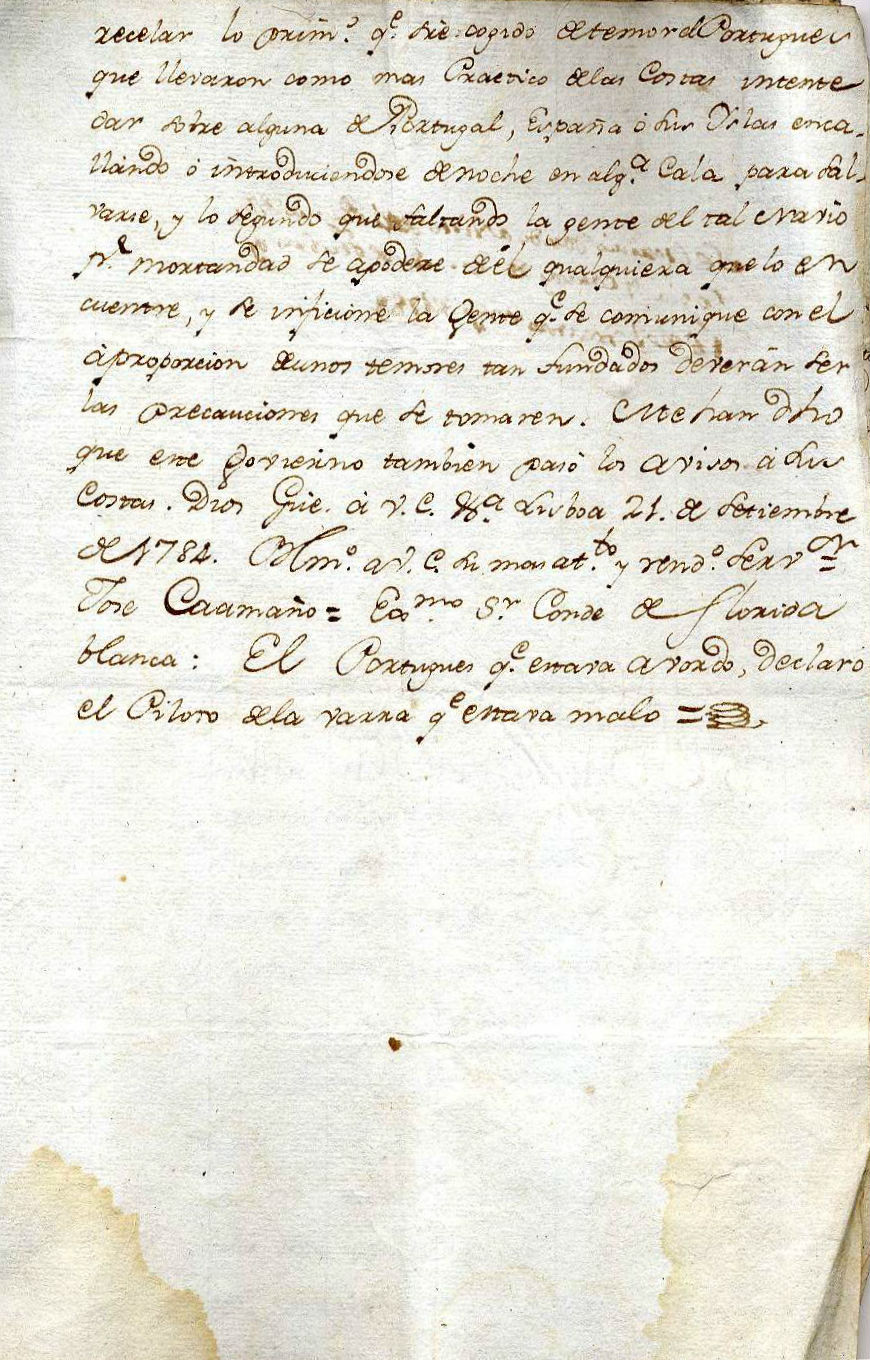 recelar lo prim.º q.e sobrecogido de temor el Portugues
que llevaron como mas Practico de las Costas intente
dar sobre alguna de Portugal, España ó sus Yslas enca-
llando ó introduciendose de noche en alg.a Cala para sal-
varse, y lo segundo que faltando la gente del tal Navio
p.r mortandad se apodere de él qualquiera que lo en
cuentre, y se inficione la Gente q.e se comunique con el
à proporcion de unos temores tan fundados deverán ser
las precauciones que se tomaren. Me han dho
que este Govierno tambien pasó los avisos à sus
Costas. Dios Gūe. à V.E. m.s a.s Lisboa 21. de Setiembre
de 1784. Exmo. a V.E. su mas at.to y rend.º serv.or =
Jose Caamaño = Exc.mo S.r Conde de Florida
blanca: El Portugues q.e estava abordo, declaró
el Piloto de la varra q.e estava malo =